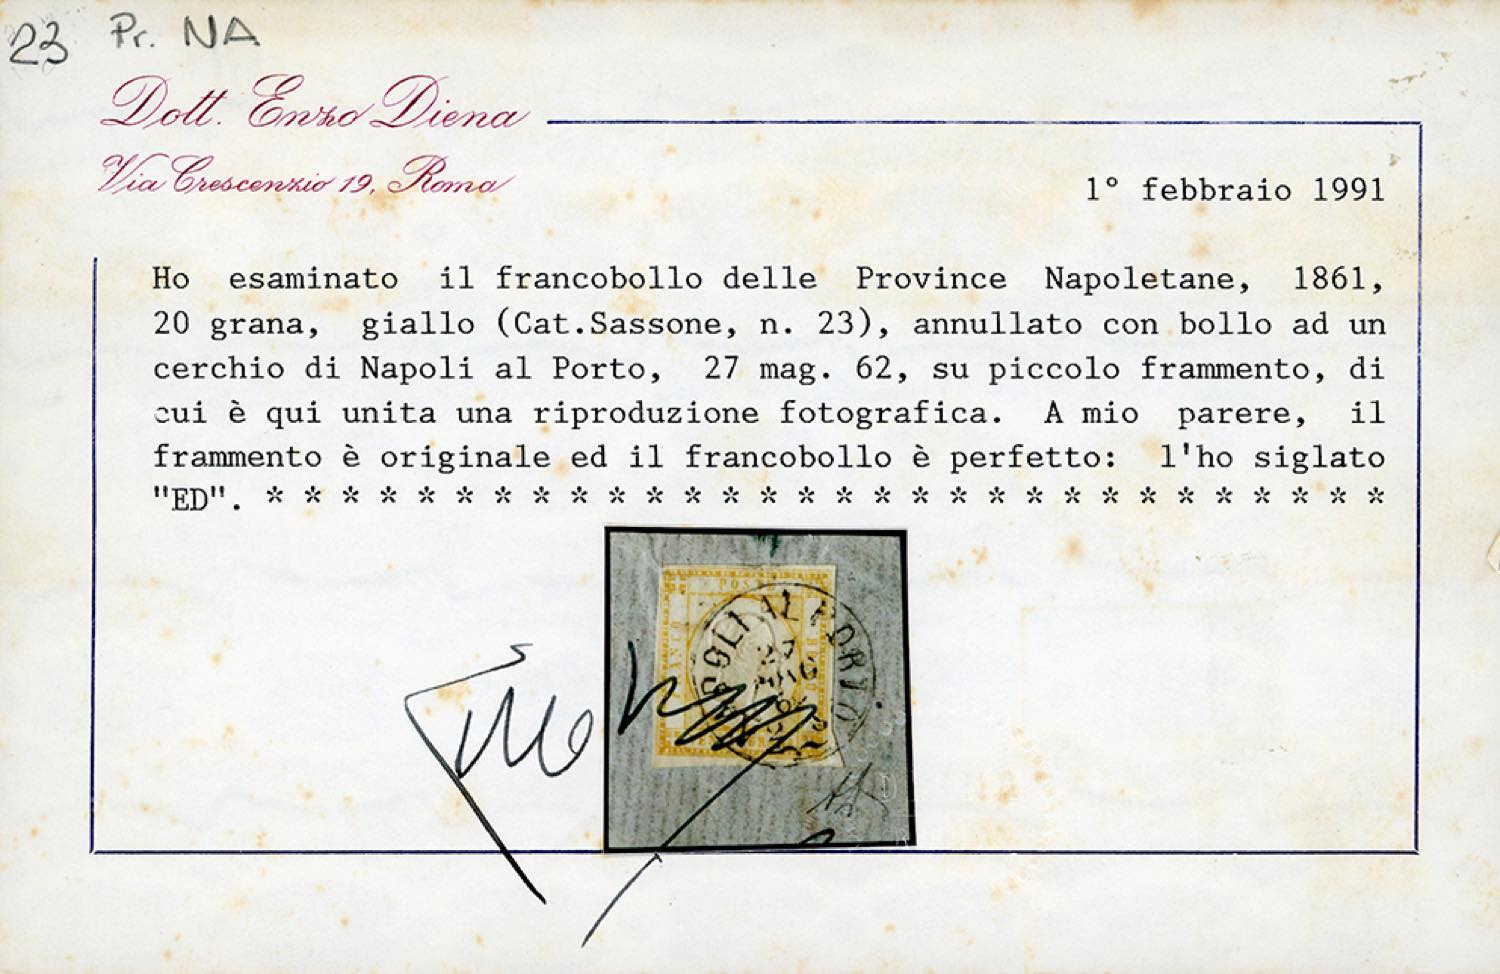 23 Pr. NA
Dott. Enzo Diena
Via Crescenzio 19, Roma
1° febbraio 1991
Ho esaminato il francobollo delle Province Napoletane, 1861,
20 grana, giallo (Cat.Sassone, n. 23), annullato con bollo ad un
cerchio di Napoli al Porto, 27 mag. 62, su piccolo frammento, di
cui è qui unita una riproduzione fotografica. A mio parere, il
frammento è originale ed il francobollo è perfetto: l'ho siglato
"ED". * * * * * * * * * * * * * * * * * * * * * * * * * * * * * *
FRANCO
AL PORTO
27